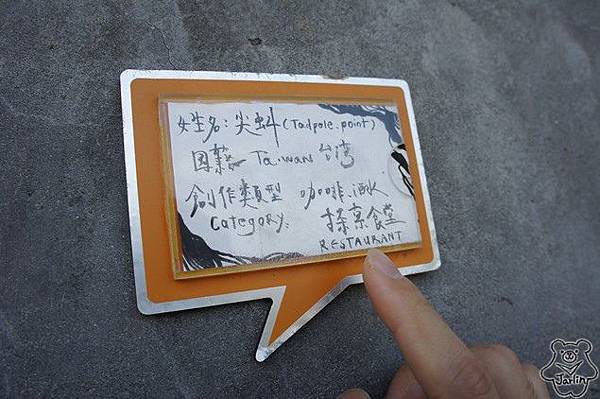 姓名：尖蚪(Tadpole.point)
国籍 Taiwan 台湾
創作類型 咖啡.酒水
Category: 探索食堂
RESTAURANT
Jarlin